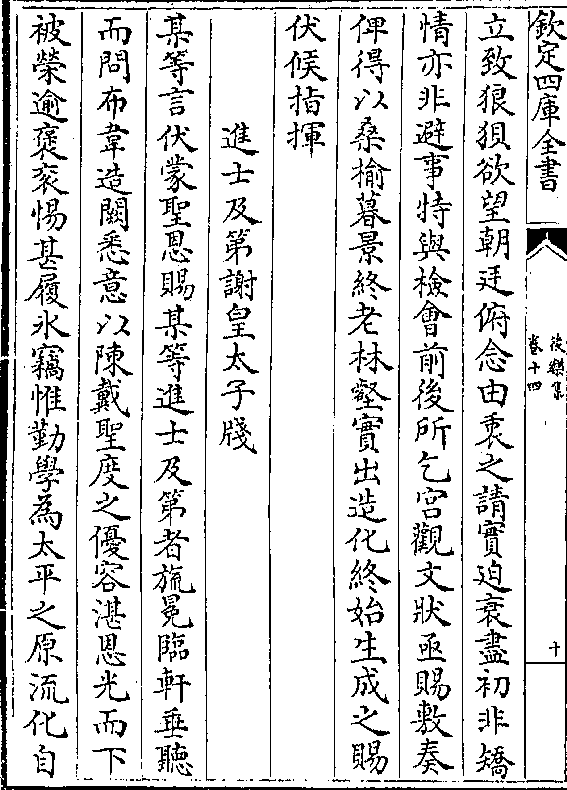 欽定四庫全書
後樂集
卷十四
十
立致狼狽欲望朝廷俯念由衷之請實迫衰盡初非矯
情亦非避事特與檢會前後所乞宮觀文狀亟賜敷奏
俾得以桑榆暮景終老林壑實出造化終始生成之賜
伏候指揮
進士及第謝皇太子牋
某等言伏蒙聖恩賜某等進士及第者旒冕臨軒垂聽
而問布韋造闕悉意以陳戴聖度之優容湛恩光而下
被榮逾褒衮惕甚履冰竊惟勤學為太平之原流化自